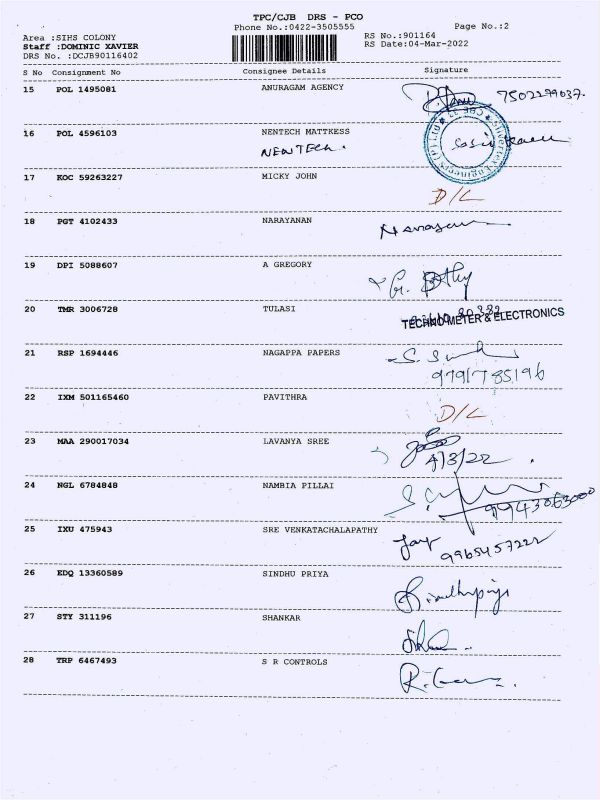 TPC/CJB DRS - PCO
Phone No.:0422-3505555
Page No.:2
Area :SIHS COLONY
RS No.:901164
Staff :DOMINIC XAVIER
RS Date:04-Mar-2022
DRS No. :DCJB90116402
S No Consignment No Consignee Details Signature
15 POL 1495081 ANURAGAM AGENCY
16 POL 4596103 NENTECH MATTKESS
NENTECH.
17 KOC 59263227 MICKY JOHN
D/L
18 PGT 4102433 NARAYANAN
19 DPI 5088607 A GREGORY
20 TMR 3006728 TULASI
TECHNO METER & ELECTRONICS
21 RSP 1694446 NAGAPPA PAPERS
9791785196
22 IXM 501165460 PAVITHRA
D/L
23 MAA 290017034 LAVANYA SREE
4/3/22
24 NGL 6784848 NAMBIA PILLAI
9943063000
25 IXU 475943 SRE VENKATACHALAPATHY
Jay
9965457222
26 EDQ 13360589 SINDHU PRIYA
27 STY 311196 SHANKAR
28 TRP 6467493 S R CONTROLS